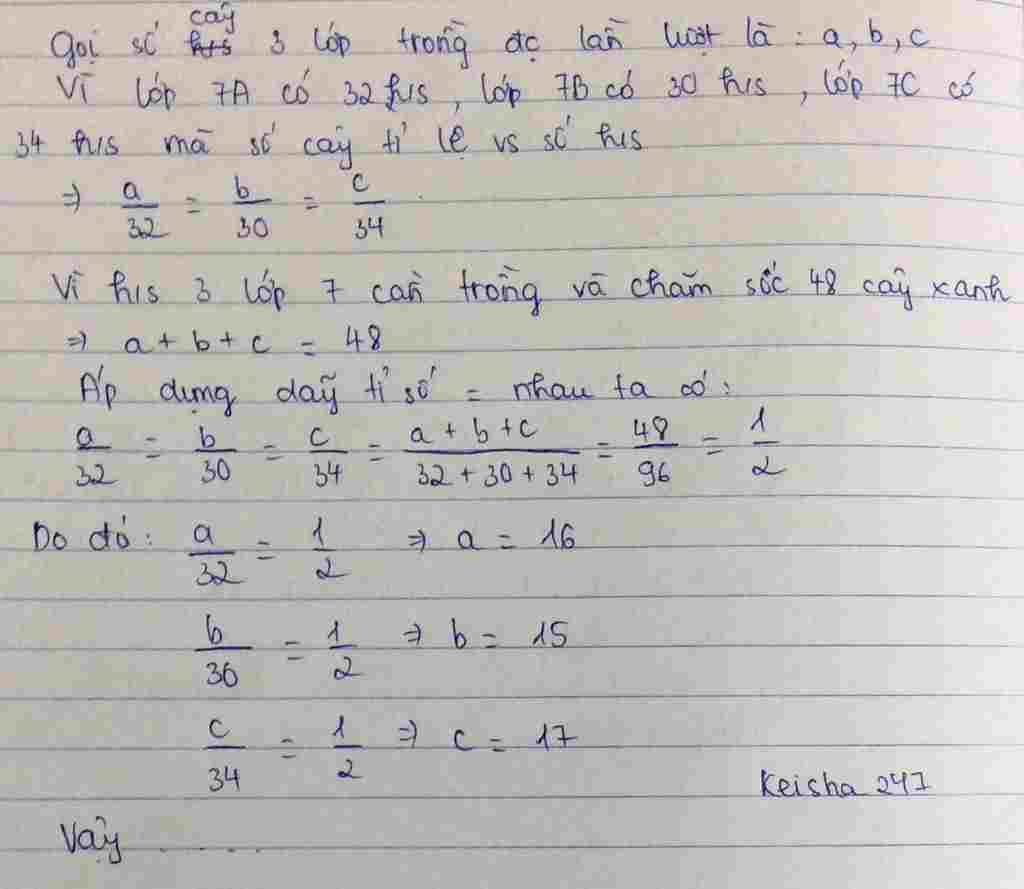 Gọi số h/s cây 3 lớp trồng đc lần lượt là : a, b, c
Vì lớp 7A có 32 h/s , lớp 7B có 30 h/s , lớp 7C có
34 h/s mà số cây tỉ lệ vs số h/s
=> a/32 = b/30 = c/34
Vì h/s 3 lớp 7 cần trồng và chăm sốc 48 cây xanh
=> a + b + c = 48
Áp dụng dãy tỉ số = nhau ta có :
a/32 = b/30 = c/34 = (a + b + c)/(32 + 30 + 34) = 48/96 = 1/2
Do đó : a/32 = 1/2 => a = 16
b/30 = 1/2 => b = 15
c/34 = 1/2 => c = 17
Keisha 247
Vậy .......